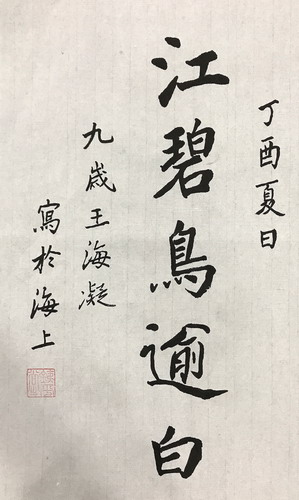 丁酉夏日
江碧鳥逾白
九歲王海凝
寫於海上